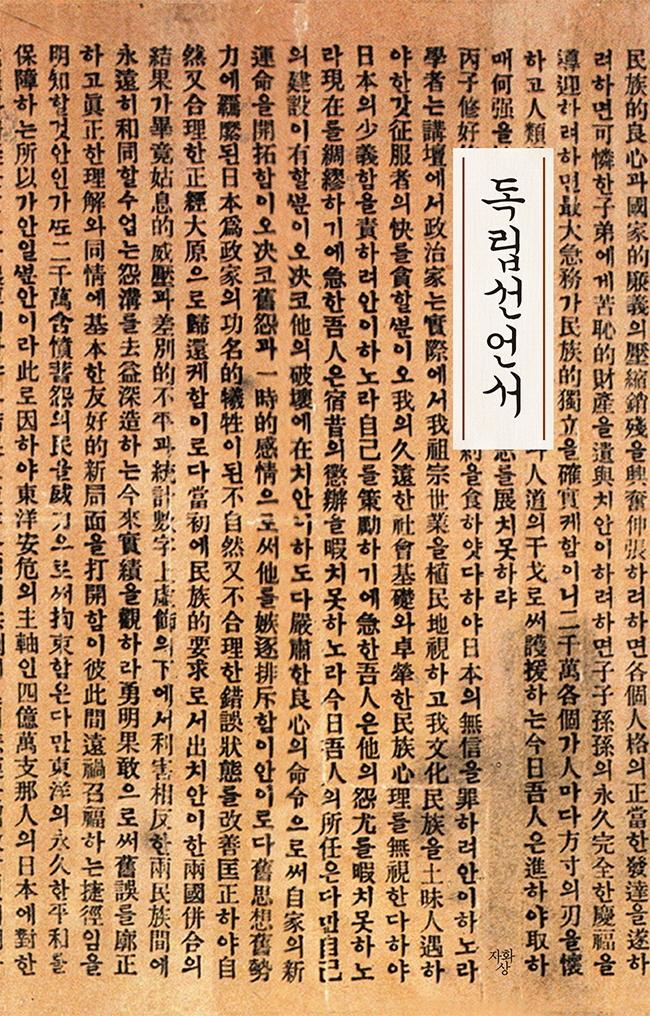 독립선언서
民族的良心과國家的廉義의壓縮銷殘을興奮伸張하려하면各個人格의正當한發達을遂하
려하면可憐한子弟에게苦恥的財產을遺與치안이하려하면子子孫孫의永久完全한慶福을
導迎하려하면最大急務가民族的獨立을確實케함이니二千萬各個가人마다方寸의刃을懷
하고人類 人道의干戈로써護援하는今日吾人은進하야取하
매何强을 를展치못하랴
丙子修好 을食하얏다하야日本의無信을罪하려안이하노라
學者는講壇에서政治家는實際에서我祖宗世業을植民地視하고我文化民族을土昧人遇하
야한갓征服者의快를貪할ᄲᅮᆫ이오我의久遠한社會基礎와卓犖한民族心理를無視한다하야
日本의少義함을責하려안이하노라自己를策勵하기에急한吾人은他의怨尤를暇치못하노
라現在를綢繆하기에急한吾人은宿昔의懲辦을暇치못하노라今日吾人의所任은다만自己
의建設이有할ᄲᅮᆫ이오決코他의破壞에在치안이하도다嚴肅한良心의命令으로써自家의新
運命을開拓함이오決코舊怨과一時的感情으로써他를嫉逐排斥함이안이로다舊思想舊勢
力에羈縻된日本爲政家의功名的犧牲이된不自然又不合理한錯誤狀態를改善匡正하야自
然又合理한正經大原으로歸還케함이로다當初에民族的要求로서出치안이한兩國併合의
結果가畢竟姑息的威壓과差別的不平과統計數字上虛飾의下에서利害相反한兩民族間에
永遠히和同할수업는怨溝를去益深造하는今來實績을觀하라勇明果敢으로써舊誤를廓正
하고眞正한理解와同情에基本한友好的新局面을打開함이彼此間遠禍召福하는捷徑임을
明知할것안인가ᄯᅩ二千萬含憤蓄怨의民을威力으로써拘束함은다만東洋의永久한平和를
保障하는所以가안일ᄲᅮᆫ안이라此로因하야東洋安危의主軸인四億萬支那人의日本에對한
자화상